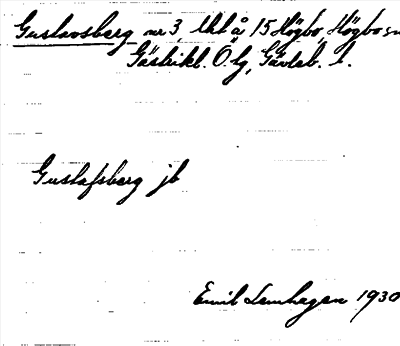 Gustavsberg nr 3, lht å 15 Högbo, Högbo sn
Gästrikl. Ö. lg, Gävleb. l.
Gustafsberg jb
Emil Lemhagen 1930